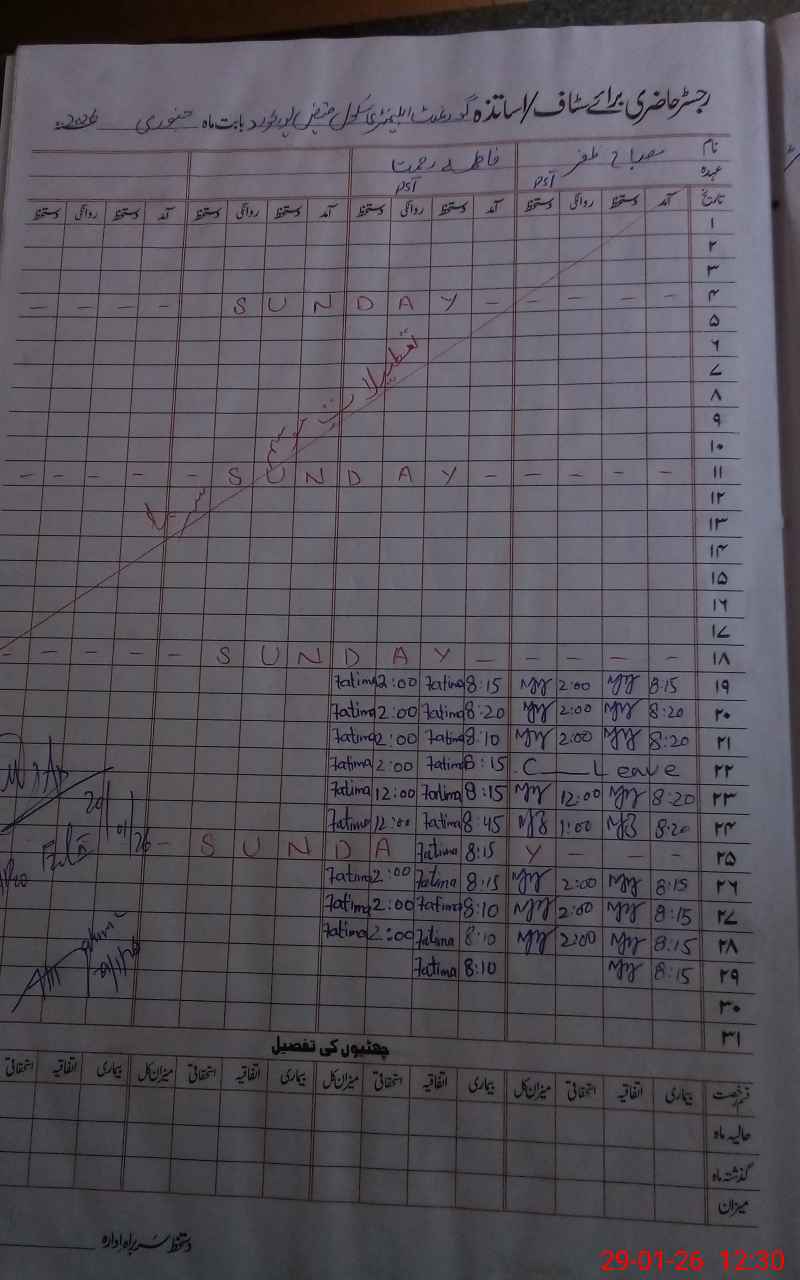 رجسٹر حاضری برائے سٹاف/اساتذہ گورنمنٹ ایلیمنٹری سکول فیض پور خورد بابت ماہ جنوری 2026ء
نام مصباح ظفر فاطمہ رحمت
عہدہ PST PST
تاریخ آمد دستخط روانگی دستخط آمد دستخط روانگی دستخط آمد دستخط روانگی دستخط آمد دستخط روانگی دستخط
۱
۲
۳
۴ - - - - - S U N D A Y - - - - -
۵
۶
۷
۸
۹
۱۰
۱۱ - - - - - S U N D A Y - - - - -
۱۲
۱۳
۱۴
۱۵
۱۶
۱۷
۱۸ - - - - - S U N D A Y - - - - -
تعطیلات موسم سرما
۱۹ 8:15 2:00 8:15 Fatima 2:00 Fatima
۲۰ 8:20 2:00 8:20 Fatima 2:00 Fatima
۲۱ 8:20 2:00 8:10 Fatima 2:00 Fatima
۲۲ C — Leave 8:15 Fatima 2:00 Fatima
۲۳ 8:20 12:00 8:15 Fatima 12:00 Fatima
۲۴ 8:20 1:00 8:45 Fatima 12:00 Fatima
۲۵ - S U N D A Y - - - 8:15 Fatima
۲۶ 8:15 2:00 8:15 Fatima 2:00 Fatima
۲۷ 8:15 2:00 8:10 Fatima 2:00 Fatima
۲۸ 8:15 2:00 8:10 Fatima 2:00 Fatima
۲۹ 8:15 8:10 Fatima
۳۰
۳۱
20/01/26
چھٹیوں کی تفصیل
قسم رخصت بیماری اتفاقیہ استحقاقی میزان کل بیماری اتفاقیہ استحقاقی میزان کل بیماری اتفاقیہ استحقاقی میزان کل بیماری اتفاقیہ استحقاقی
حالیہ ماہ
گذشتہ ماہ
میزان
دستخط سربراہ ادارہ
29-01-26 12:30